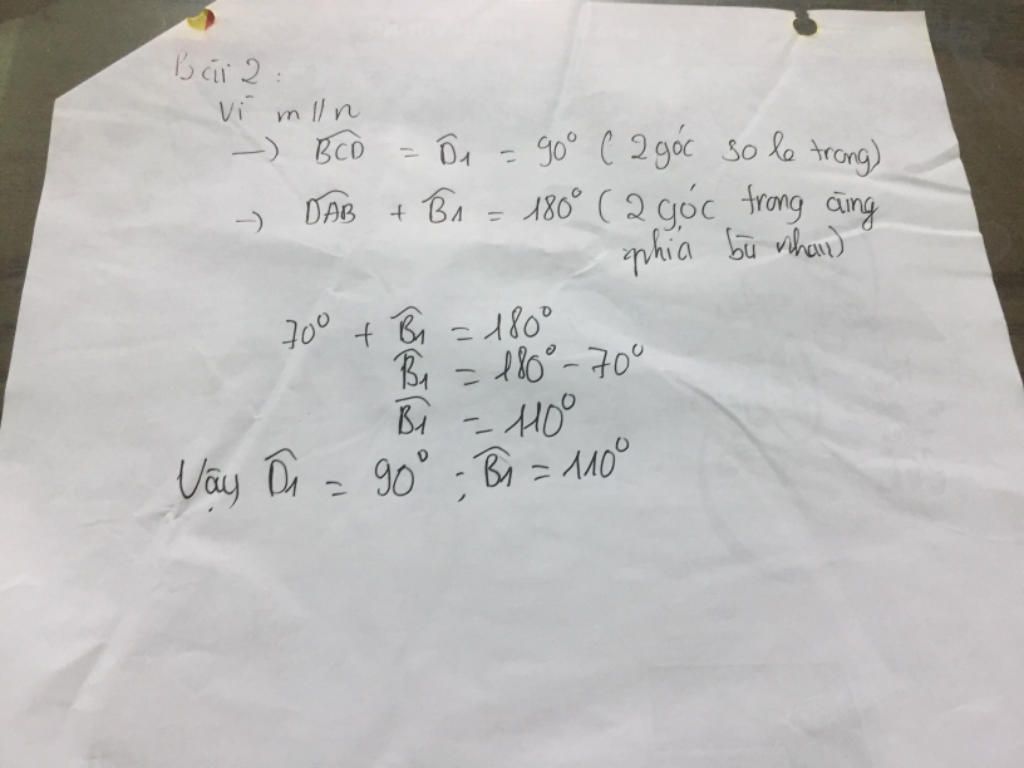 Bài 2:
Vì m // n
→) B̂CD = D̂1 = 90° ( 2 góc so le trong)
→) D̂AB + B̂1 = 180° ( 2 góc trong cùng
phía bù nhau)
70° + B̂1 = 180°
B̂1 = 180° - 70°
B̂1 = 110°
Vậy D̂1 = 90° ; B̂1 = 110°